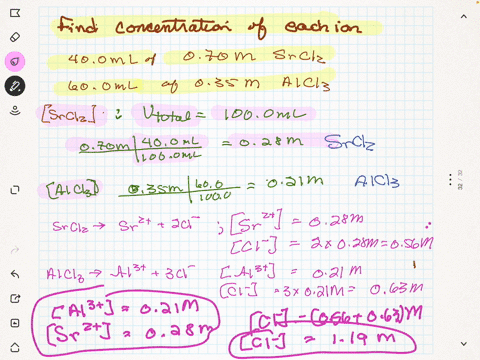 Find concentration of each ion
40.0mL of 0.70M SrCl2
60.0mL of 0.35M AlCl3
[SrCl2] : Vtotal = 100.0mL
0.70M | 40.0mL / 100.0mL = 0.28M SrCl2
[AlCl3] 0.35M | 60.0 / 100.0 = 0.21M AlCl3
SrCl2 → Sr2+ + 2Cl- ; [Sr2+] = 0.28M
[Cl-] = 2 x 0.28M = 0.56M
AlCl3 → Al3+ + 3Cl- [Al3+] = 0.21M
[Cl-] = 3 x 0.21M = 0.63M
[Al3+] = 0.21M
[Sr2+] = 0.28M
[Cl-] = (0.56 + 0.63)M
[Cl-] = 1.19M